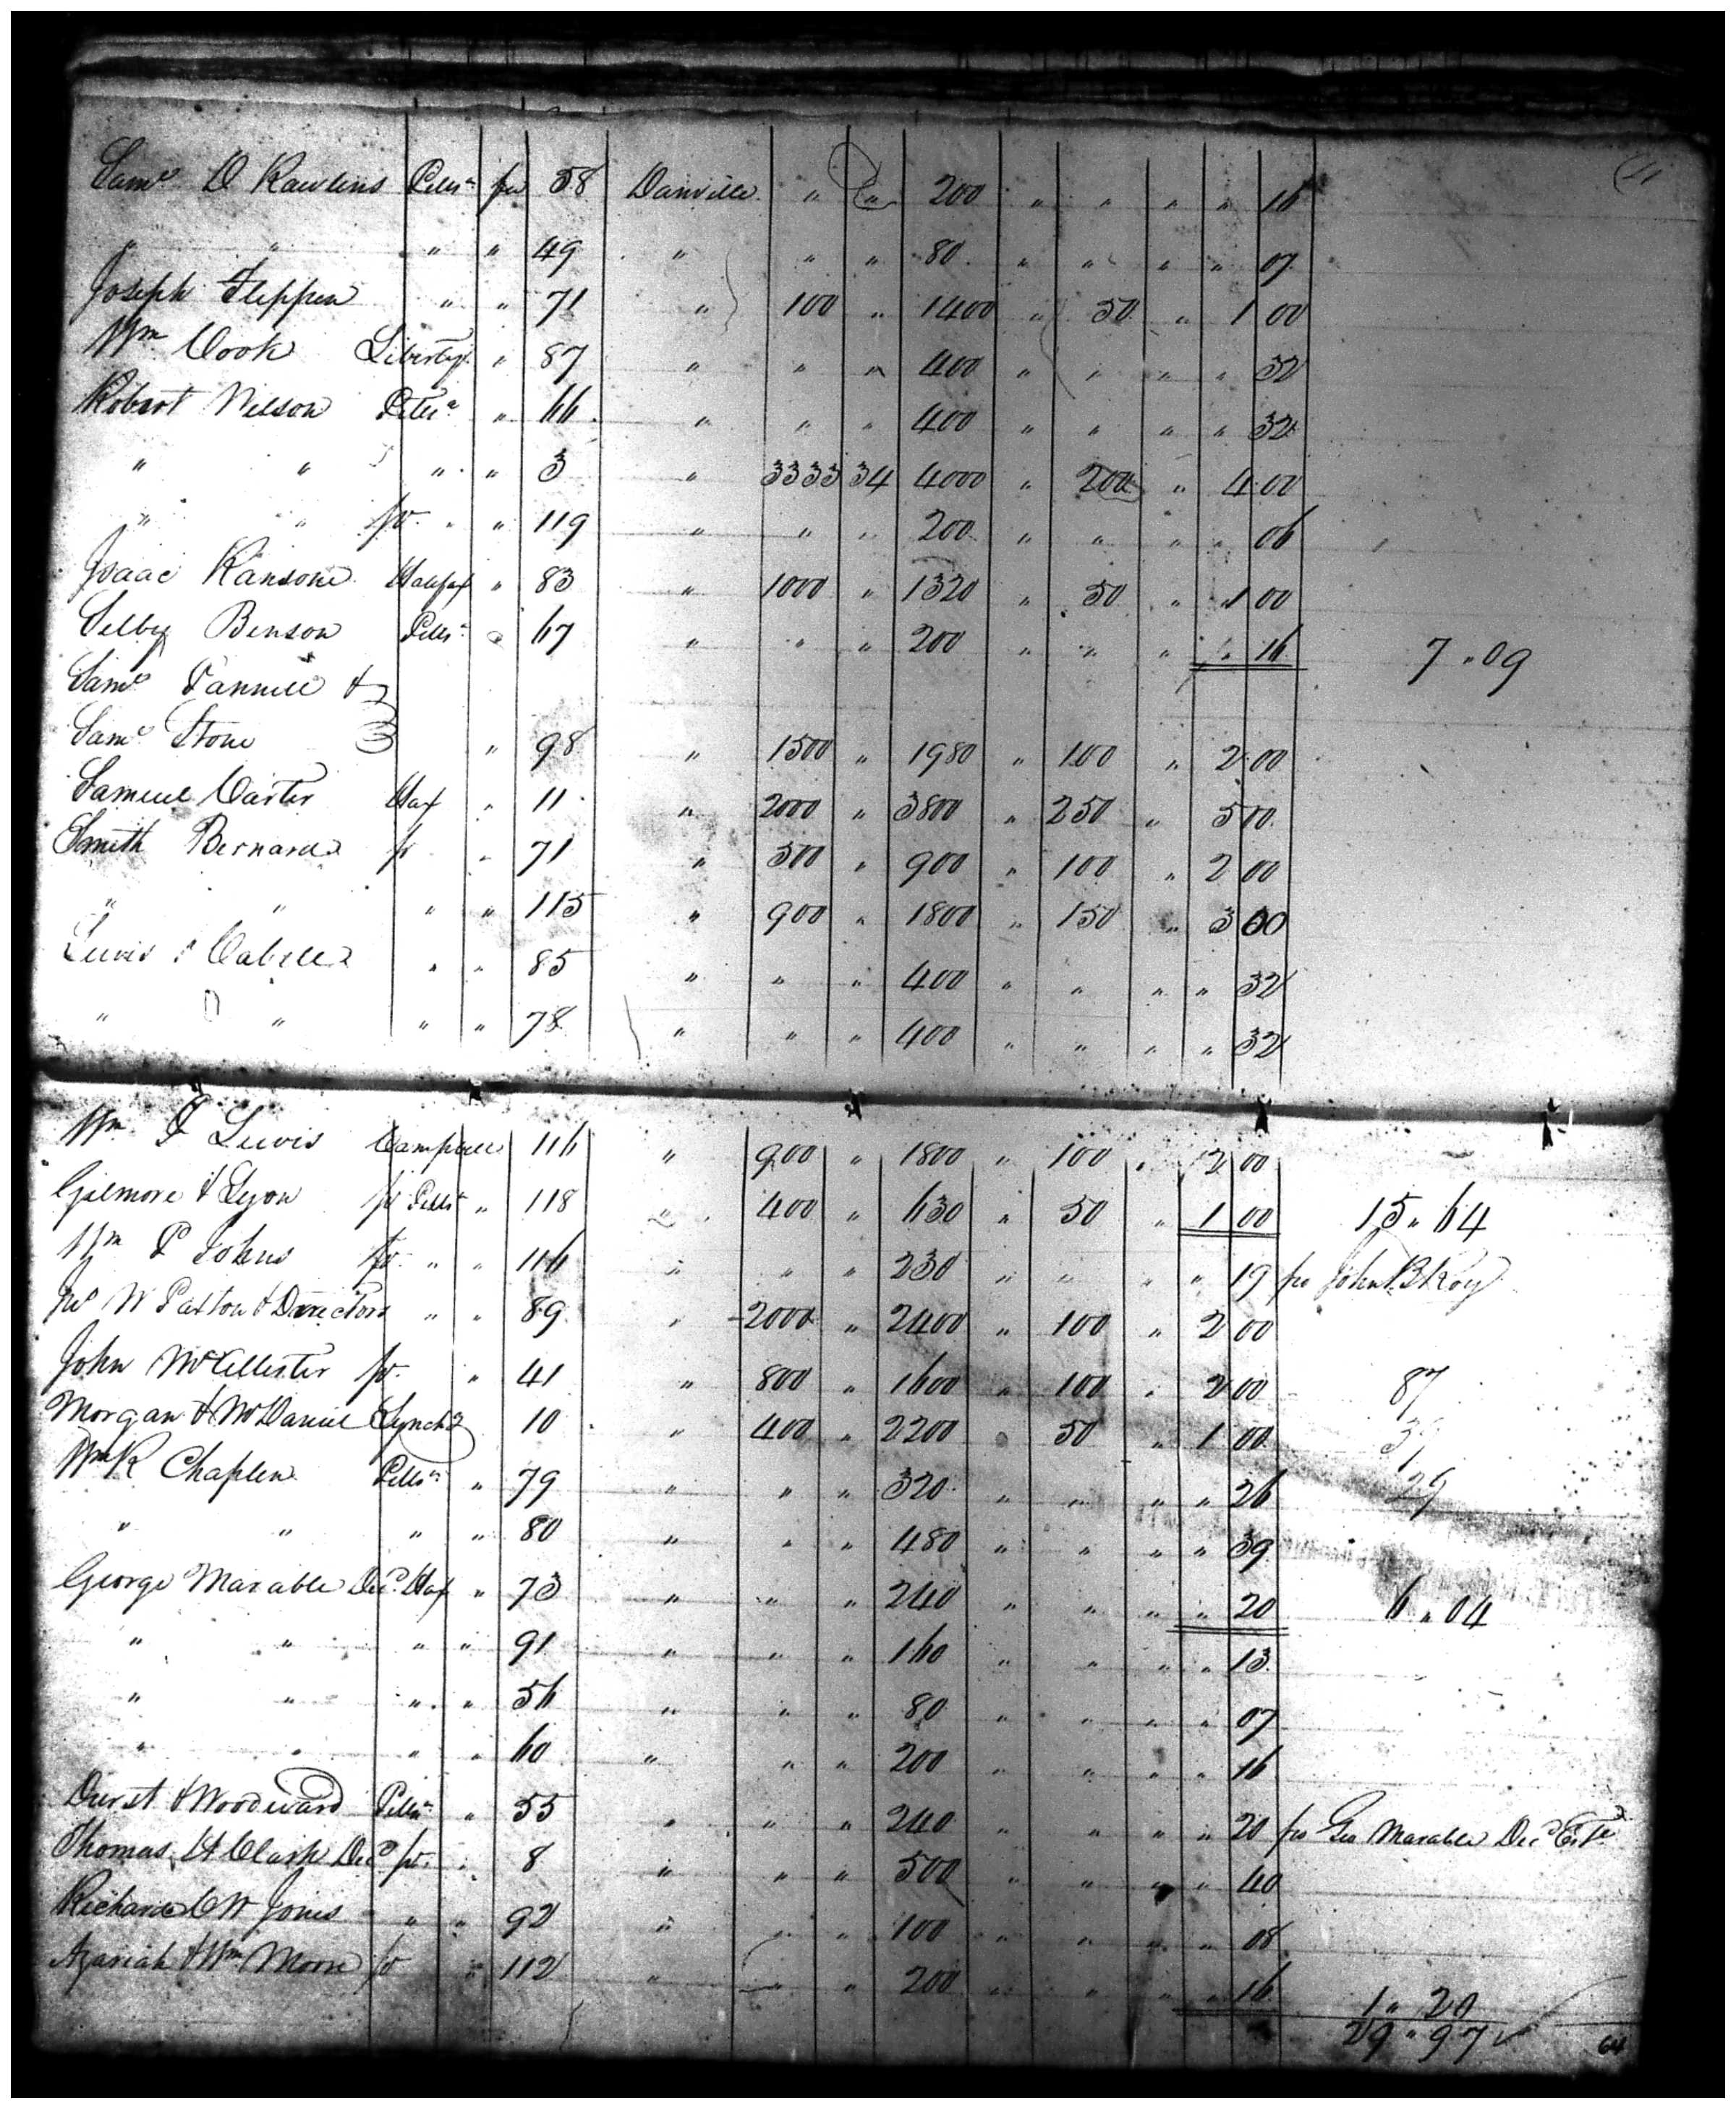 Saml D Rawlins Pittsa fee 58 Danville " " 200 " " " " 16
" " " " 49 " " " 80 " " " " 07
Joseph Flippen " " 71 " 100 " 1400 " 50 " 1 00
Wm Cook Liberty " 87 " " " 400 " " " " 32
Robert Wilson Pittsa " 66 " " " 400 " " " " 32
" " " " 3 " 3333 34 4000 " 200 " 4 00
" " fr " " 119 " " " 200 " " " " 06
Isaac Ransone Halifax " 83 " 1000 " 1320 " 50 " 1 00
Selby Benson Pittsa " 67 " " " 200 " " " " 16 7 " 09
Saml Pannill &
Saml Stone " 98 " 1500 " 1980 " 100 " 2 00
Samuel Carter Hax " 11 " 2000 " 3800 " 250 " 5 00
Smith Bernard fr " 71 " 500 " 900 " 100 " 2 00
" " " " 115 " 900 " 1800 " 150 " 3 00
Lewis & Cabell " " 85 " " " 400 " " " " 32
" " " " 78 " " " 400 " " " " 32
Wm J Lewis Campbell 116 " 900 " 1800 " 100 " 2 00
Gilmore & Lyon fr Pittsa " 118 " 400 " 630 " 50 " 1 00 15 " 64
Wm P Johns fr " " 116 " " " 230 " " " " 19 fee John B Roy
W Patton & Directors " " 89 " 2000 " 2400 " 100 " 2 00
John McAllister fr " 41 " 800 " 1600 " 100 " 2 00 87
Morgan & McDaniel Lynchg 10 " 400 " 2200 " 50 " 1 00
Wm R Chaplin Pittsa " 79 " " " 320 " " " " 26 29
" " " " 80 " " " 480 " " " " 39
George Marable Decd Hax " 73 " " " 240 " " " " 20 6 " 04
" " " " 91 " " " 160 " " " " 13
" " " " 56 " " " 80 " " " " 07
" " " " 60 " " " 200 " " " " 16
Durst & Woodward Pittsa " 55 " " " 240 " " " " 20 fee Geo Marable Decd Este
Thomas H Clark Decd fr " 8 " " " 500 " " " " 40
Richard W Jones " " 92 " " " 100 " " " " 08
Azariah & Wm Moore fr " 112 " " " 200 " " " " 16 1 " 20
29 " 97
64